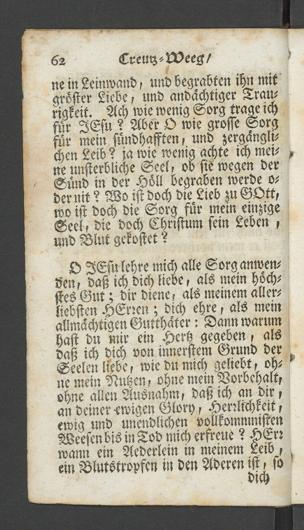 62 Creutz-Weeg/
ne in Leinwand, und begrabten ihn mit
gröster Liebe, und andächtiger Trau-
rigkeit. Ach wie wenig Sorg trage ich
für JEsu? Aber O wie grosse Sorg
für mein sündhafften, und zergängli-
chen Leib? ja wie wenig achte ich mei-
ne unsterbliche Seel, ob sie wegen der
Sünd in der Höll begraben werde o-
der nit? Wo ist doch die Lieb zu GOtt,
wo ist doch die Sorg für mein einzige
Seel, die doch Christum sein Leben,
und Blut gekostet?
O JEsu lehre mich alle Sorg anwen-
den, daß ich dich liebe, als mein höch-
stes Gut; dir diene, als meinem aller-
liebsten HErren; dich ehre, als mein
allmächtigen Gutthäter: Dann warum
hast du mir ein Hertz gegeben, als
daß ich dich von innerstem Grund der
Seelen liebe, wie du mich geliebt, oh-
ne mein Nutzen, ohne mein Vorbehalt,
ohne allen Ausnahm, daß ich an dir,
an deiner ewigen Glory, Herrlichkeit,
ewig und unendlichen vollkommnisten
Weesen bis in Tod mich erfreue? HErr
wann ein Aederlein in meinem Leib,
ein Blutstropfen in den Aderen ist, so
dich